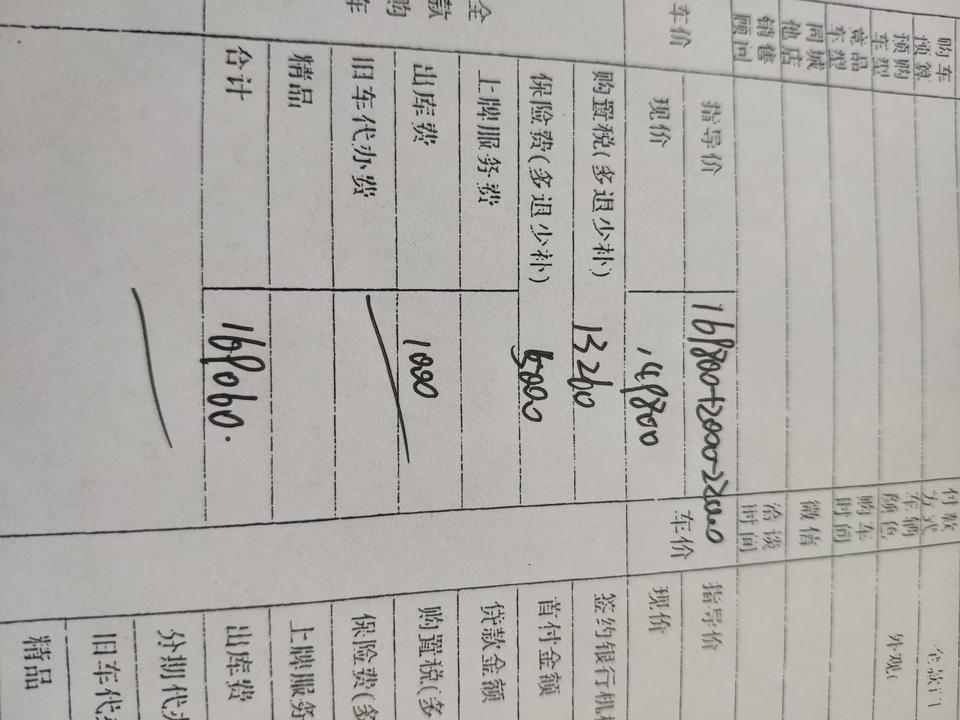 购车预算
预购车型
竞品车型
同城他店
销售顾问
付款方式
车辆颜色
外观
购车时间
微信
洽谈时间
全款购车
车价
指导价 169800+2000-22000
现价 149800
购置税(多退少补) 13260
保险费(多退少补) 5000
上牌服务费
出库费 1000
旧车代办费
精品
合计 169060.
车价
指导价
现价
签约银行机
首付金额
贷款金额
购置税(多
保险费(多
上牌服务
出库费
分期代
旧车代
精品